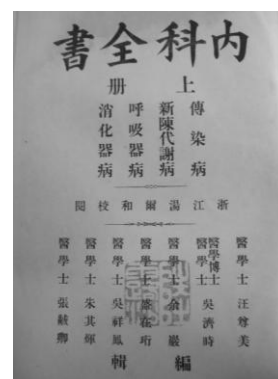 內科全書
上册
傳染病
新陳代謝病
呼吸器病
消化器病
浙江湯爾和校閱
醫學士汪尊美
醫學博士醫學士吳濟時
醫學士余巖
醫學士
醫學士吳祥鳳
醫學士朱其輝
醫學士張黻卿
編輯